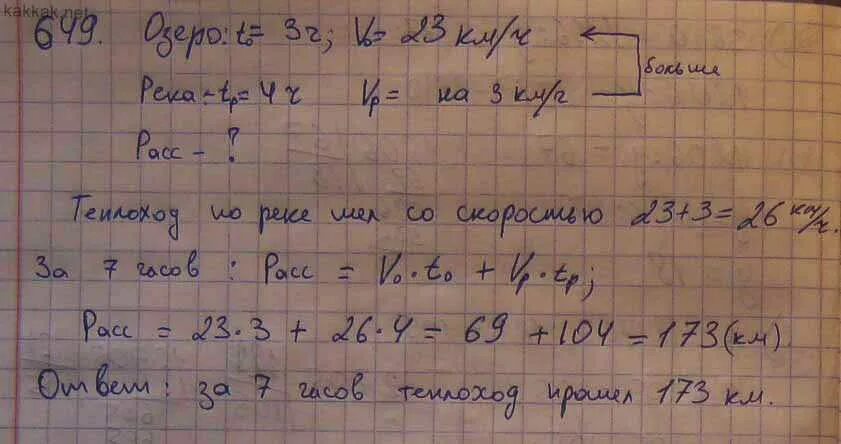 kakkak.net
649. Озеро: t₀= 3ч; V₀= 23 км/ч
больше
Река - tₚ= 4 ч Vₚ= на 3 км/ч
Расс - ?
Теплоход по реке шел со скоростью 23+3=26 км/ч.
За 7 часов: Расс = V₀·t₀ + Vₚ·tₚ;
Расс = 23·3 + 26·4 = 69 + 104 = 173(км)
Ответ: за 7 часов теплоход прошел 173 км.